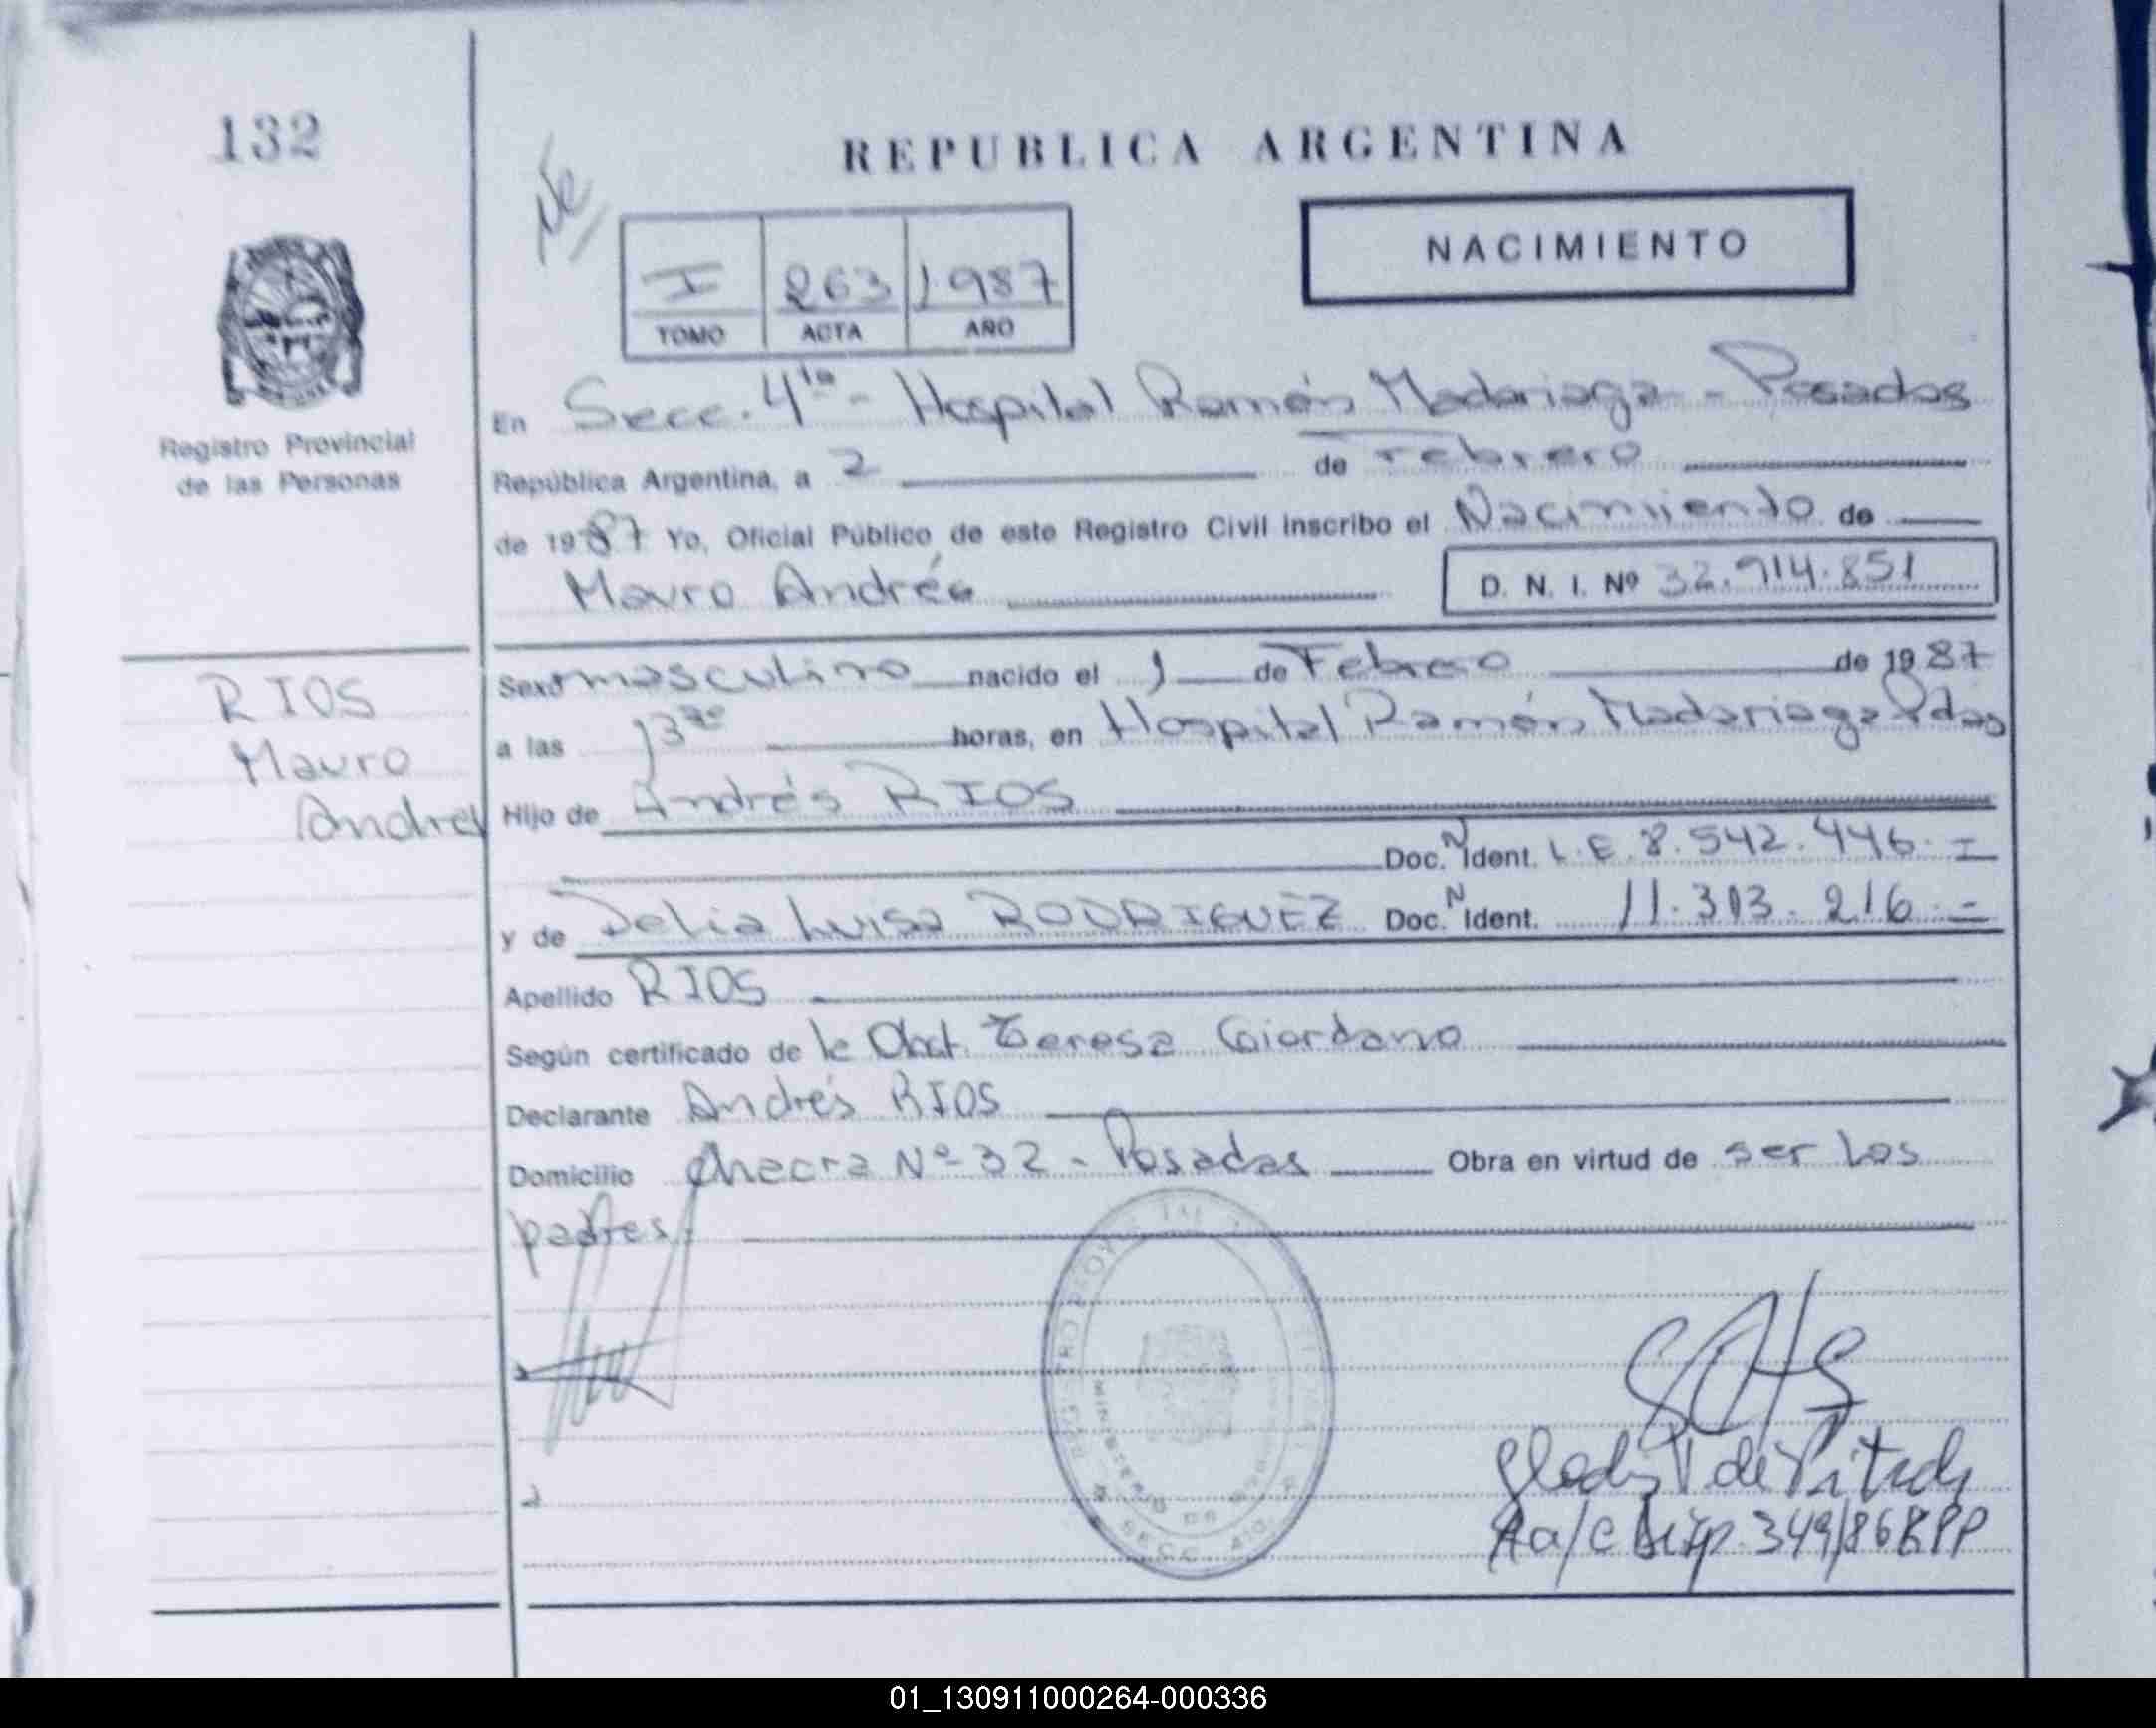 132
REPUBLICA ARGENTINA
NACIMIENTO
I 263 1987
TOMO ACTA AÑO
Registro Provincial
de las Personas
En Secc. 4ta - Hospital Ramón Madariaga - Posadas
República Argentina, a 2 de Febrero
de 1987 Yo, Oficial Público de este Registro Civil inscribo el Nacimiento de
Mauro Andrés
D. N. I. Nº 32.914.851
RIOS
Mauro
Andres
Sexo masculino nacido el 1 de Febrero de 1987
a las 13 horas, en Hospital Ramón Madariaga Pdas
Hijo de Andrés RIOS
Doc. N Ident. L.E. 8.542.446.
y de Delia Luisa RODRIGUEZ Doc. N Ident. 11.303.216.-
Apellido RIOS
Según certificado de la Obst. Teresa Giordano
Declarante Andrés RIOS
Domicilio Chacra Nº 32 - Posadas Obra en virtud de ser los
padres.
REGISTRO PROV.
MINISTERIO DE
SECC. 4ta
Gladis V. de
a/c Disp. 349/86 RPP
01_130911000264-000336